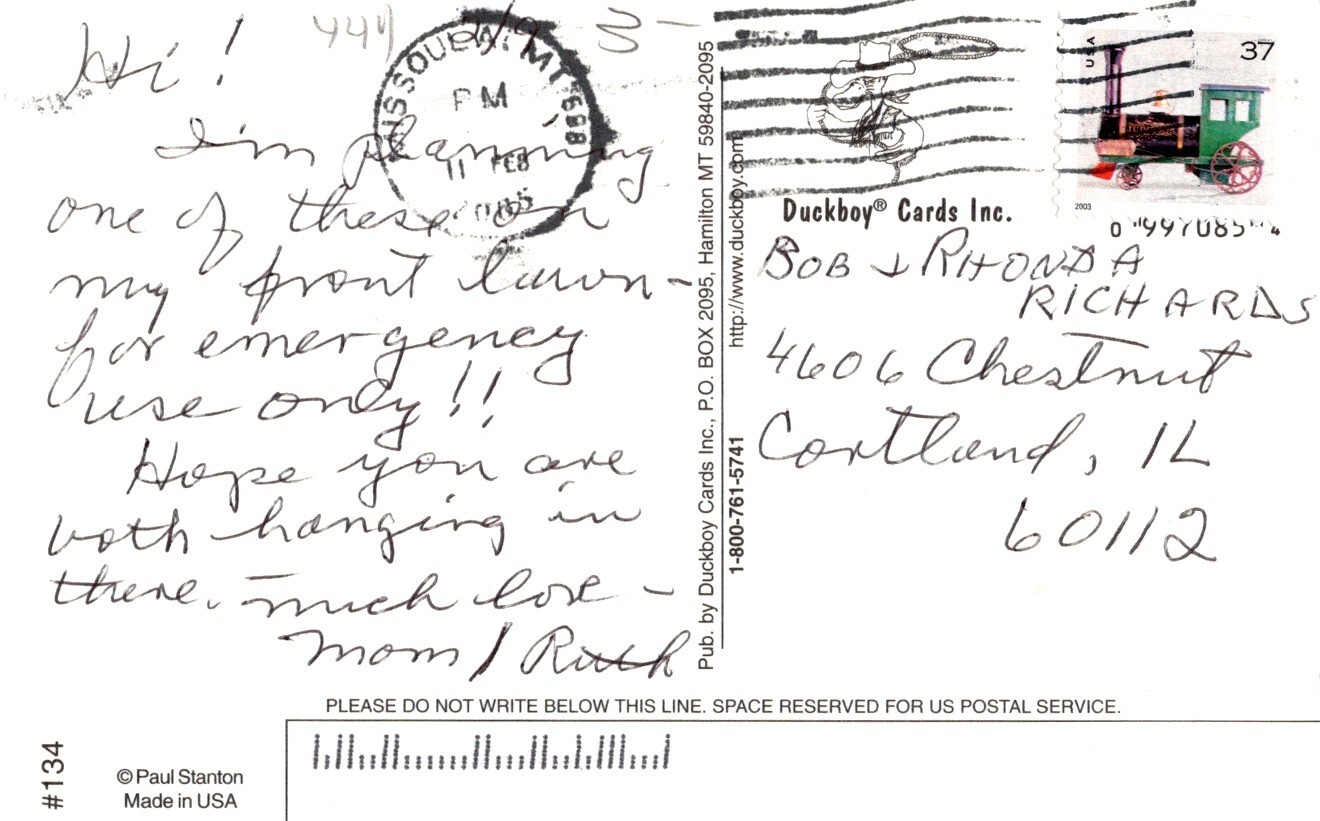 444 2/9 3-
Hi!
I'm planning
one of these on
my front lawn -
for emergency
use only!!
Hope you are
both hanging in
there. much love -
Mom / Ruth
MISSOULA, MT 598
PM
11 FEB
2005
USA
37
2003
Duckboy® Cards Inc.
BOB & RHONDA
RICHARDS
4606 Chestnut
Cortland, IL
60112
Pub. by Duckboy Cards Inc., P.O. BOX 2095, Hamilton MT 59840-2095
1-800-761-5741 http://www.duckboy.com
PLEASE DO NOT WRITE BELOW THIS LINE. SPACE RESERVED FOR US POSTAL SERVICE.
#134
© Paul Stanton
Made in USA